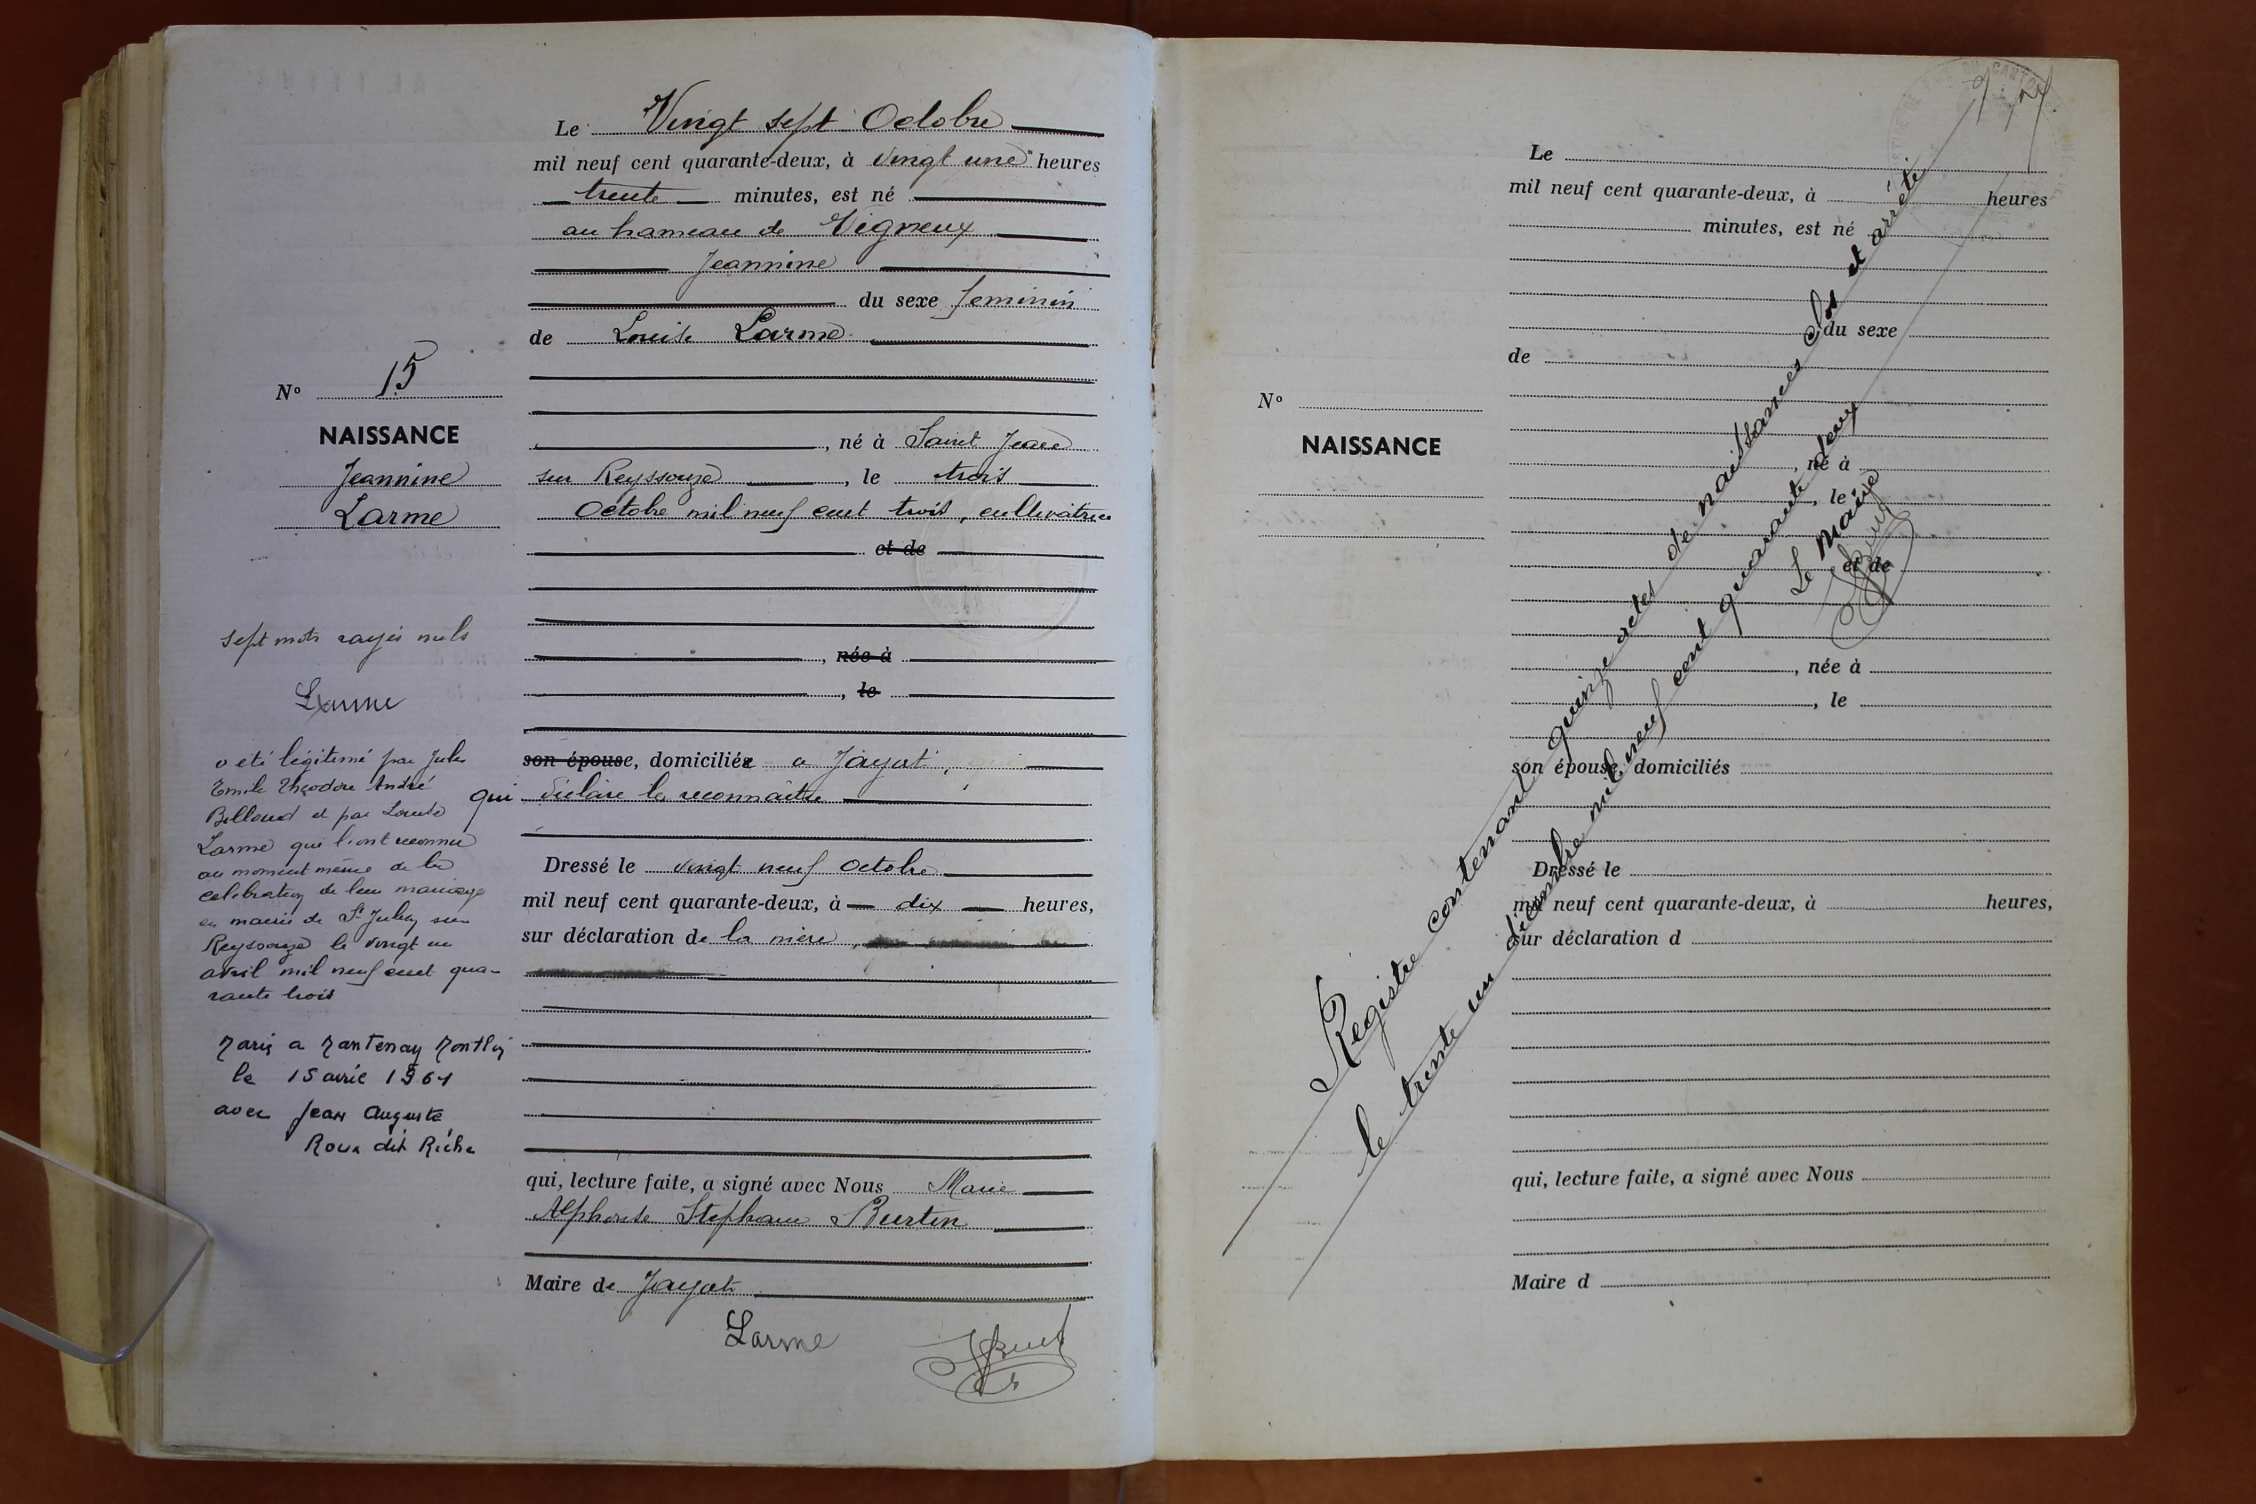 Le Vingt sept Octobre
mil neuf cent quarante-deux, à vingt une heures
trente minutes, est né
au hameau de Vigneux
Jeannine
du sexe feminin
de Louise Larme
, né à Saint Jean
sur Reyssouze, le trois
Octobre mil neuf cent trois, cultivatrice
et de
, née à
, le
son épouse, domiciliée a Jayat,
qui déclare la reconnaître
Dressé le vingt neuf Octobre
mil neuf cent quarante-deux, à dix heures,
sur déclaration de la mère,
qui, lecture faite, a signé avec Nous Marie
Alphonse Stephane Burtin
Maire de Jayat
Larme
Nº 15
NAISSANCE
Jeannine
Larme
sept mots rayés nuls
Larme
a été légitimé par Jules
Emile Théodore André
Billoud et par Louise
Larme qui l'ont reconnu
au moment même de la
celebration de leur mariage
en mairie de St Julien sur
Reyssouze le vingt un
avril mil neuf cent qua-
rante trois
Marié a Mantenay Montlin
le 15 avril 1961
avec Jean Auguste
Roux dit Riche
Le
mil neuf cent quarante-deux, à heures
minutes, est né
du sexe
de
Nº
NAISSANCE
, né à
, le
et de
, née à
, le
son épouse, domiciliés
Dressé le
mil neuf cent quarante-deux, à heures,
sur déclaration d
qui, lecture faite, a signé avec Nous
Maire d
Registre contenant quinze actes de naissances clos et arrêté
le trente un décembre mil neuf cent quarante deux
Le Maire